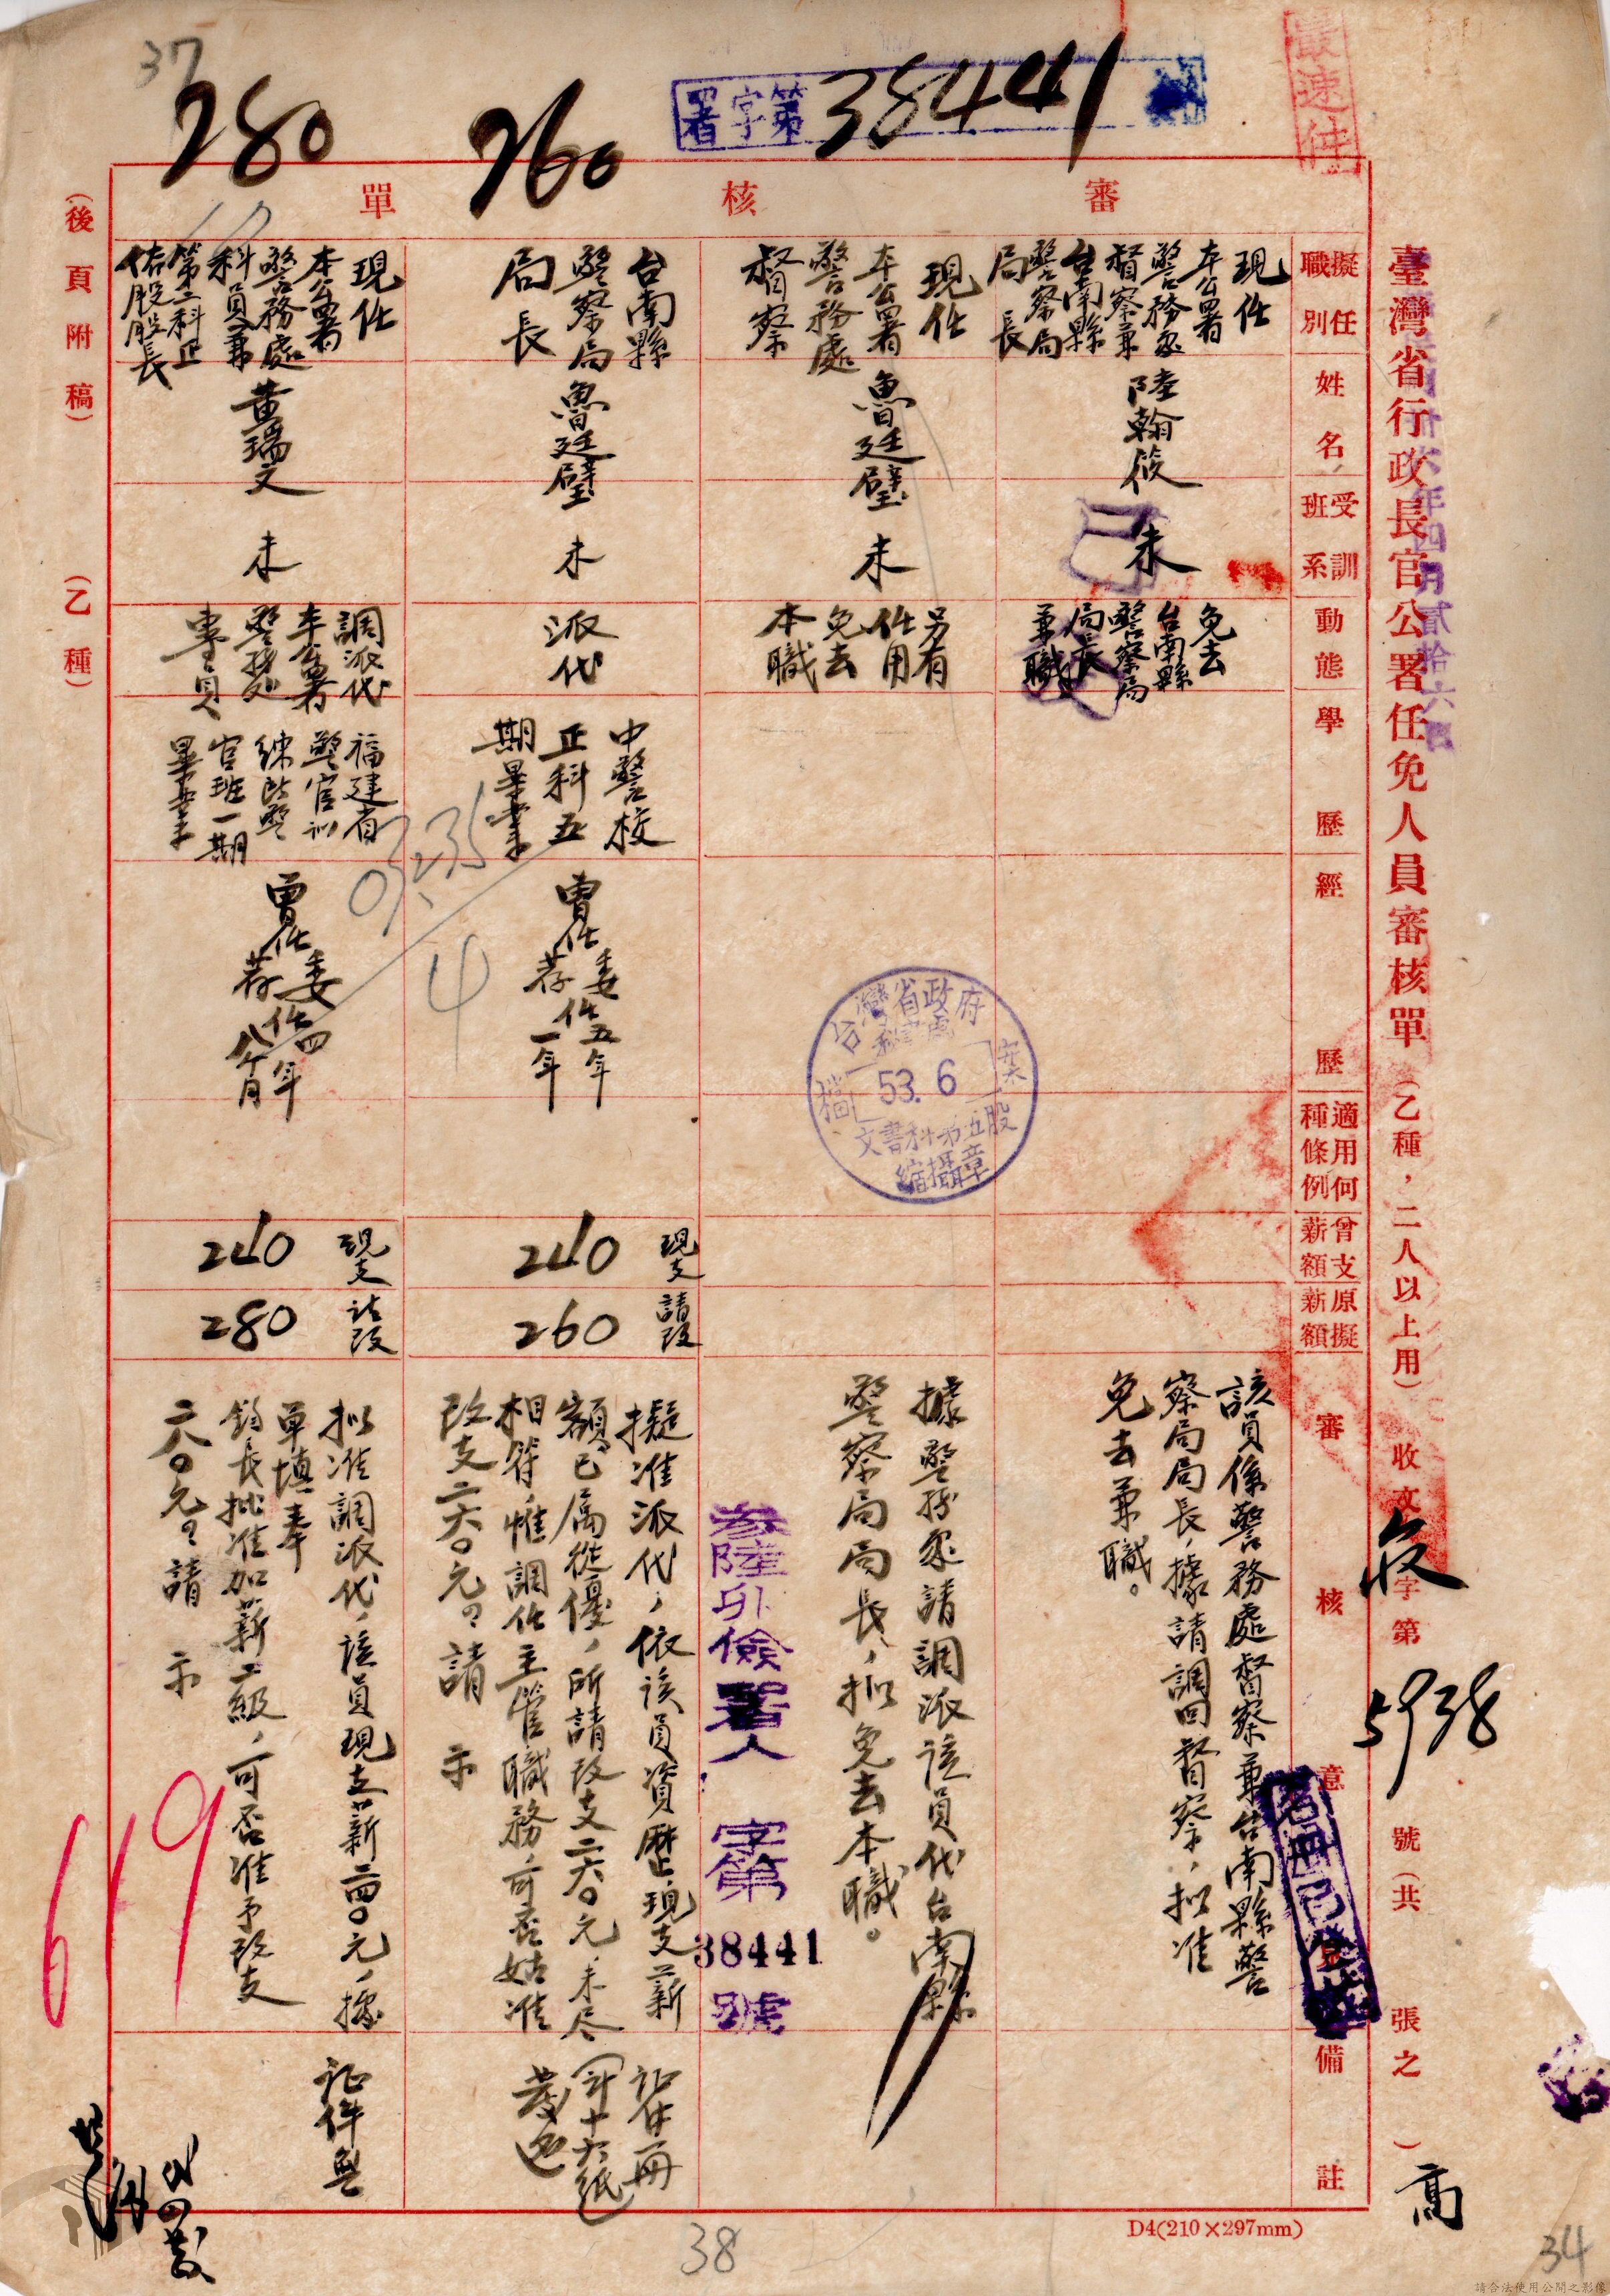 最速件
臺灣省行政長官公署任免人員審核單(乙種,二人以上用)收文 字第5938號(共 張之 )
年四月貳拾六日
署字第38441
260
280
37
審核單
擬任職別
姓名
受訓班系
動態
學歷
經歷
適用何種條例
曾支薪額
原擬薪額
審核意見
備註
現任
本公署
警務處
督察兼
台南縣
警察局
局長
陸翰筱
未
免去
台南縣
警察局
局長
兼職
該員係警務處督察兼台南縣警
察局局長,據請調回督察,拟准
免去兼職。
現任
本公署
警務處
督察
魯廷璧
未
另有
任用
免去
本職
據警務處請調派該員代台南縣
警察局局長,拟免去本職。
台南縣
警察局
局長
魯廷璧
未
派代
中警校
正科五
期畢業
曾任委任五年
荐任一年
現支
240
請改
260
擬准派代,依該員資歷,現支薪
額已屬從優,所請改支二六〇元,未尽
相符,惟調任主管職務,可否姑准
改支二六〇元?請 示
証件一冊
(計十六紙)
發還
現任
本公署
警務處
科員兼
第三科正
俗股股長
黃瑞文
未
調派代
本公署
警務處
專員
福建省
警官訓
練所警
官班一期
畢業
曾任委任四年
荐任八個月
現支
240
請改
280
拟准調派代,該員現支薪二四〇元,據
單填奉
鈞長批准加薪二級,可否准予改支
二八〇元?請 示
証件無
台灣省政府
秘書處
檔案
53.6
文書科第五股
縮攝章
署人 字第38441號
(後頁附稿)
(乙種)
619
4
高
D4(210×297mm)
38
34
請合法使用公開之影像